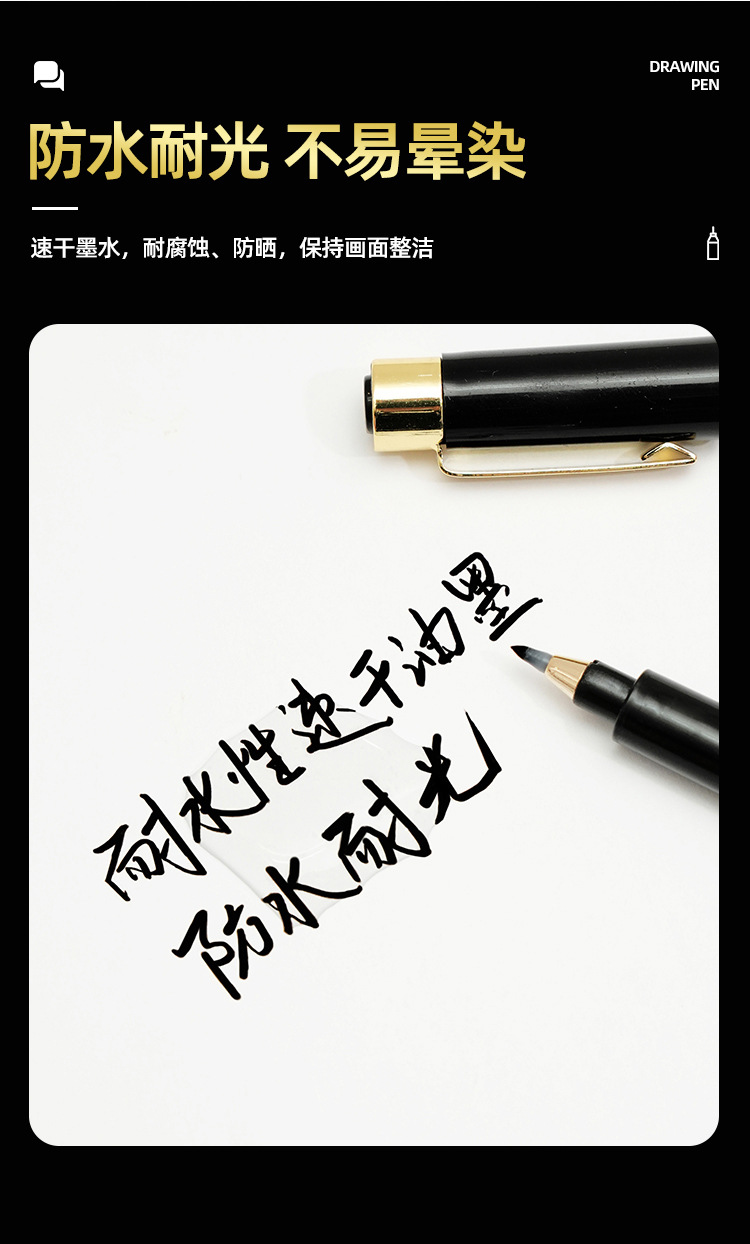 DRAWING
PEN
防水耐光 不易晕染
速干墨水，耐腐蚀、防晒，保持画面整洁
耐水性速干油墨
防水耐光